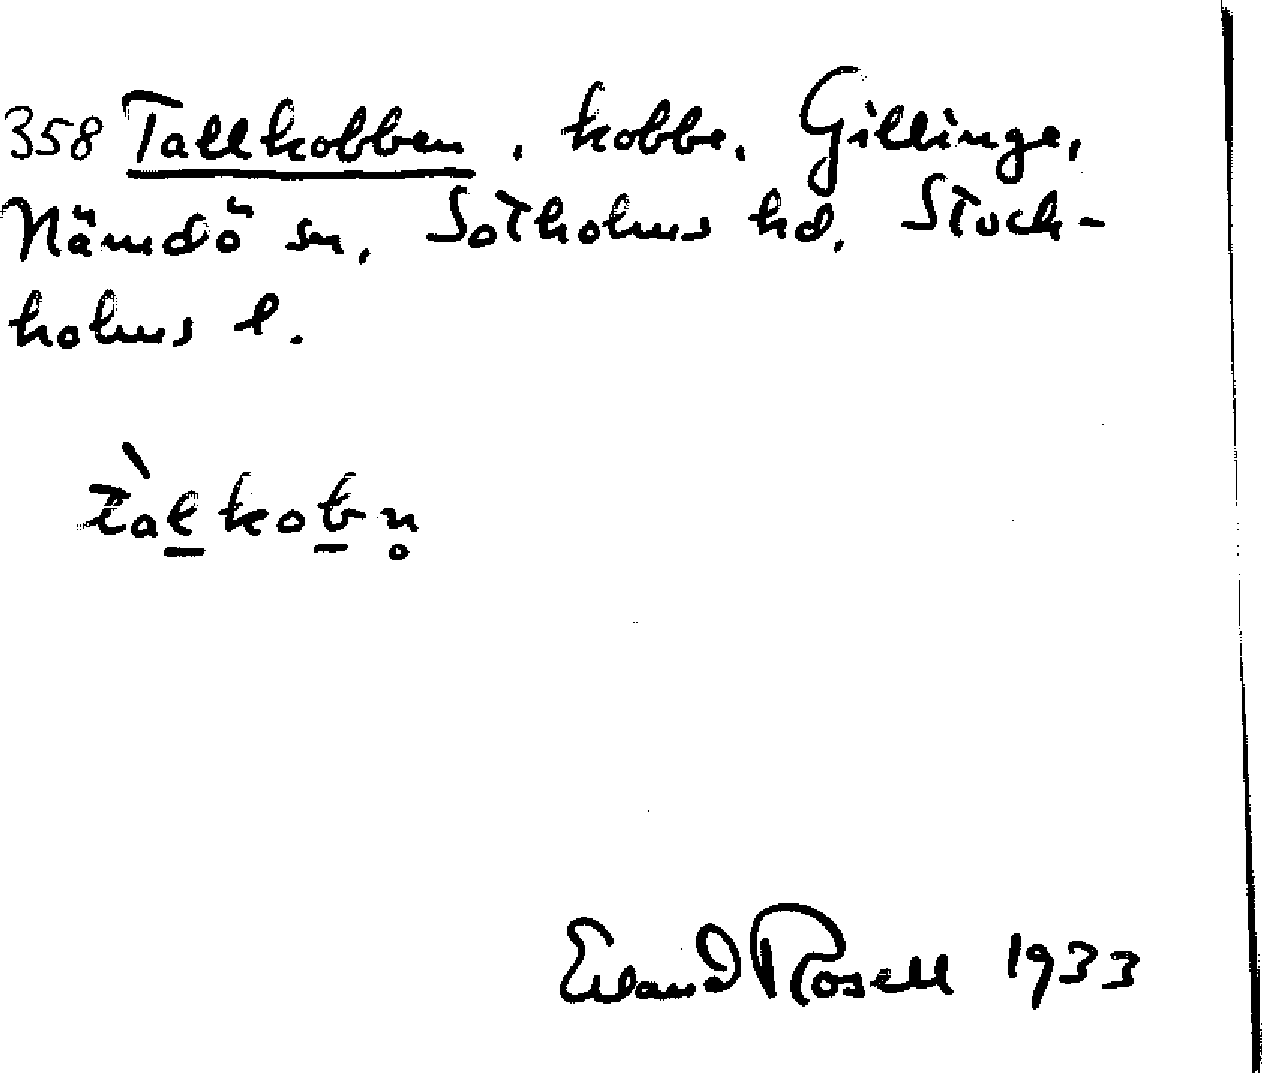 358 Tallkobben, kobbe, Gillinge,
Nämdö sn, Sotholms hd, Stock-
holms l.
tàl̲kob̲n̥
Erland Rosell 1933